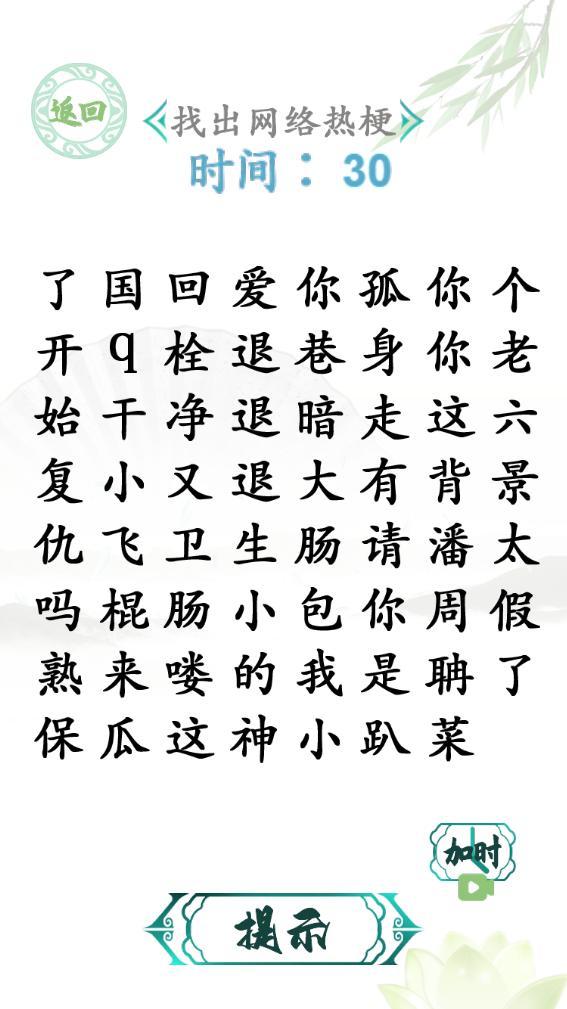 返回
找出网络热梗
时间：30
了国回爱你孤你个
开q栓退巷身你老
始干净退暗走这六
复小又退大有背景
仇飞卫生肠请潘太
吗棍肠小包你周假
熟来喽的我是聃了
保瓜这神小趴菜
加时
提示